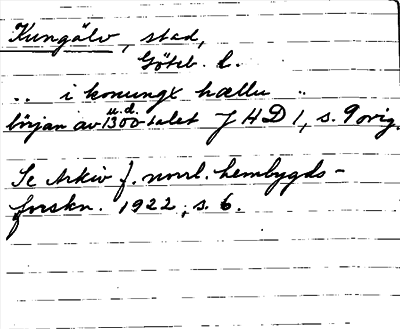 Kungälv, stad,
Göteb. l.
.. i konungx hællu ..
u.d.
början av 1300-talet J H D 1, s. 9 ovig.
Se Arkiv f. norrl. hembygds-
forskn. 1922, s. 6.